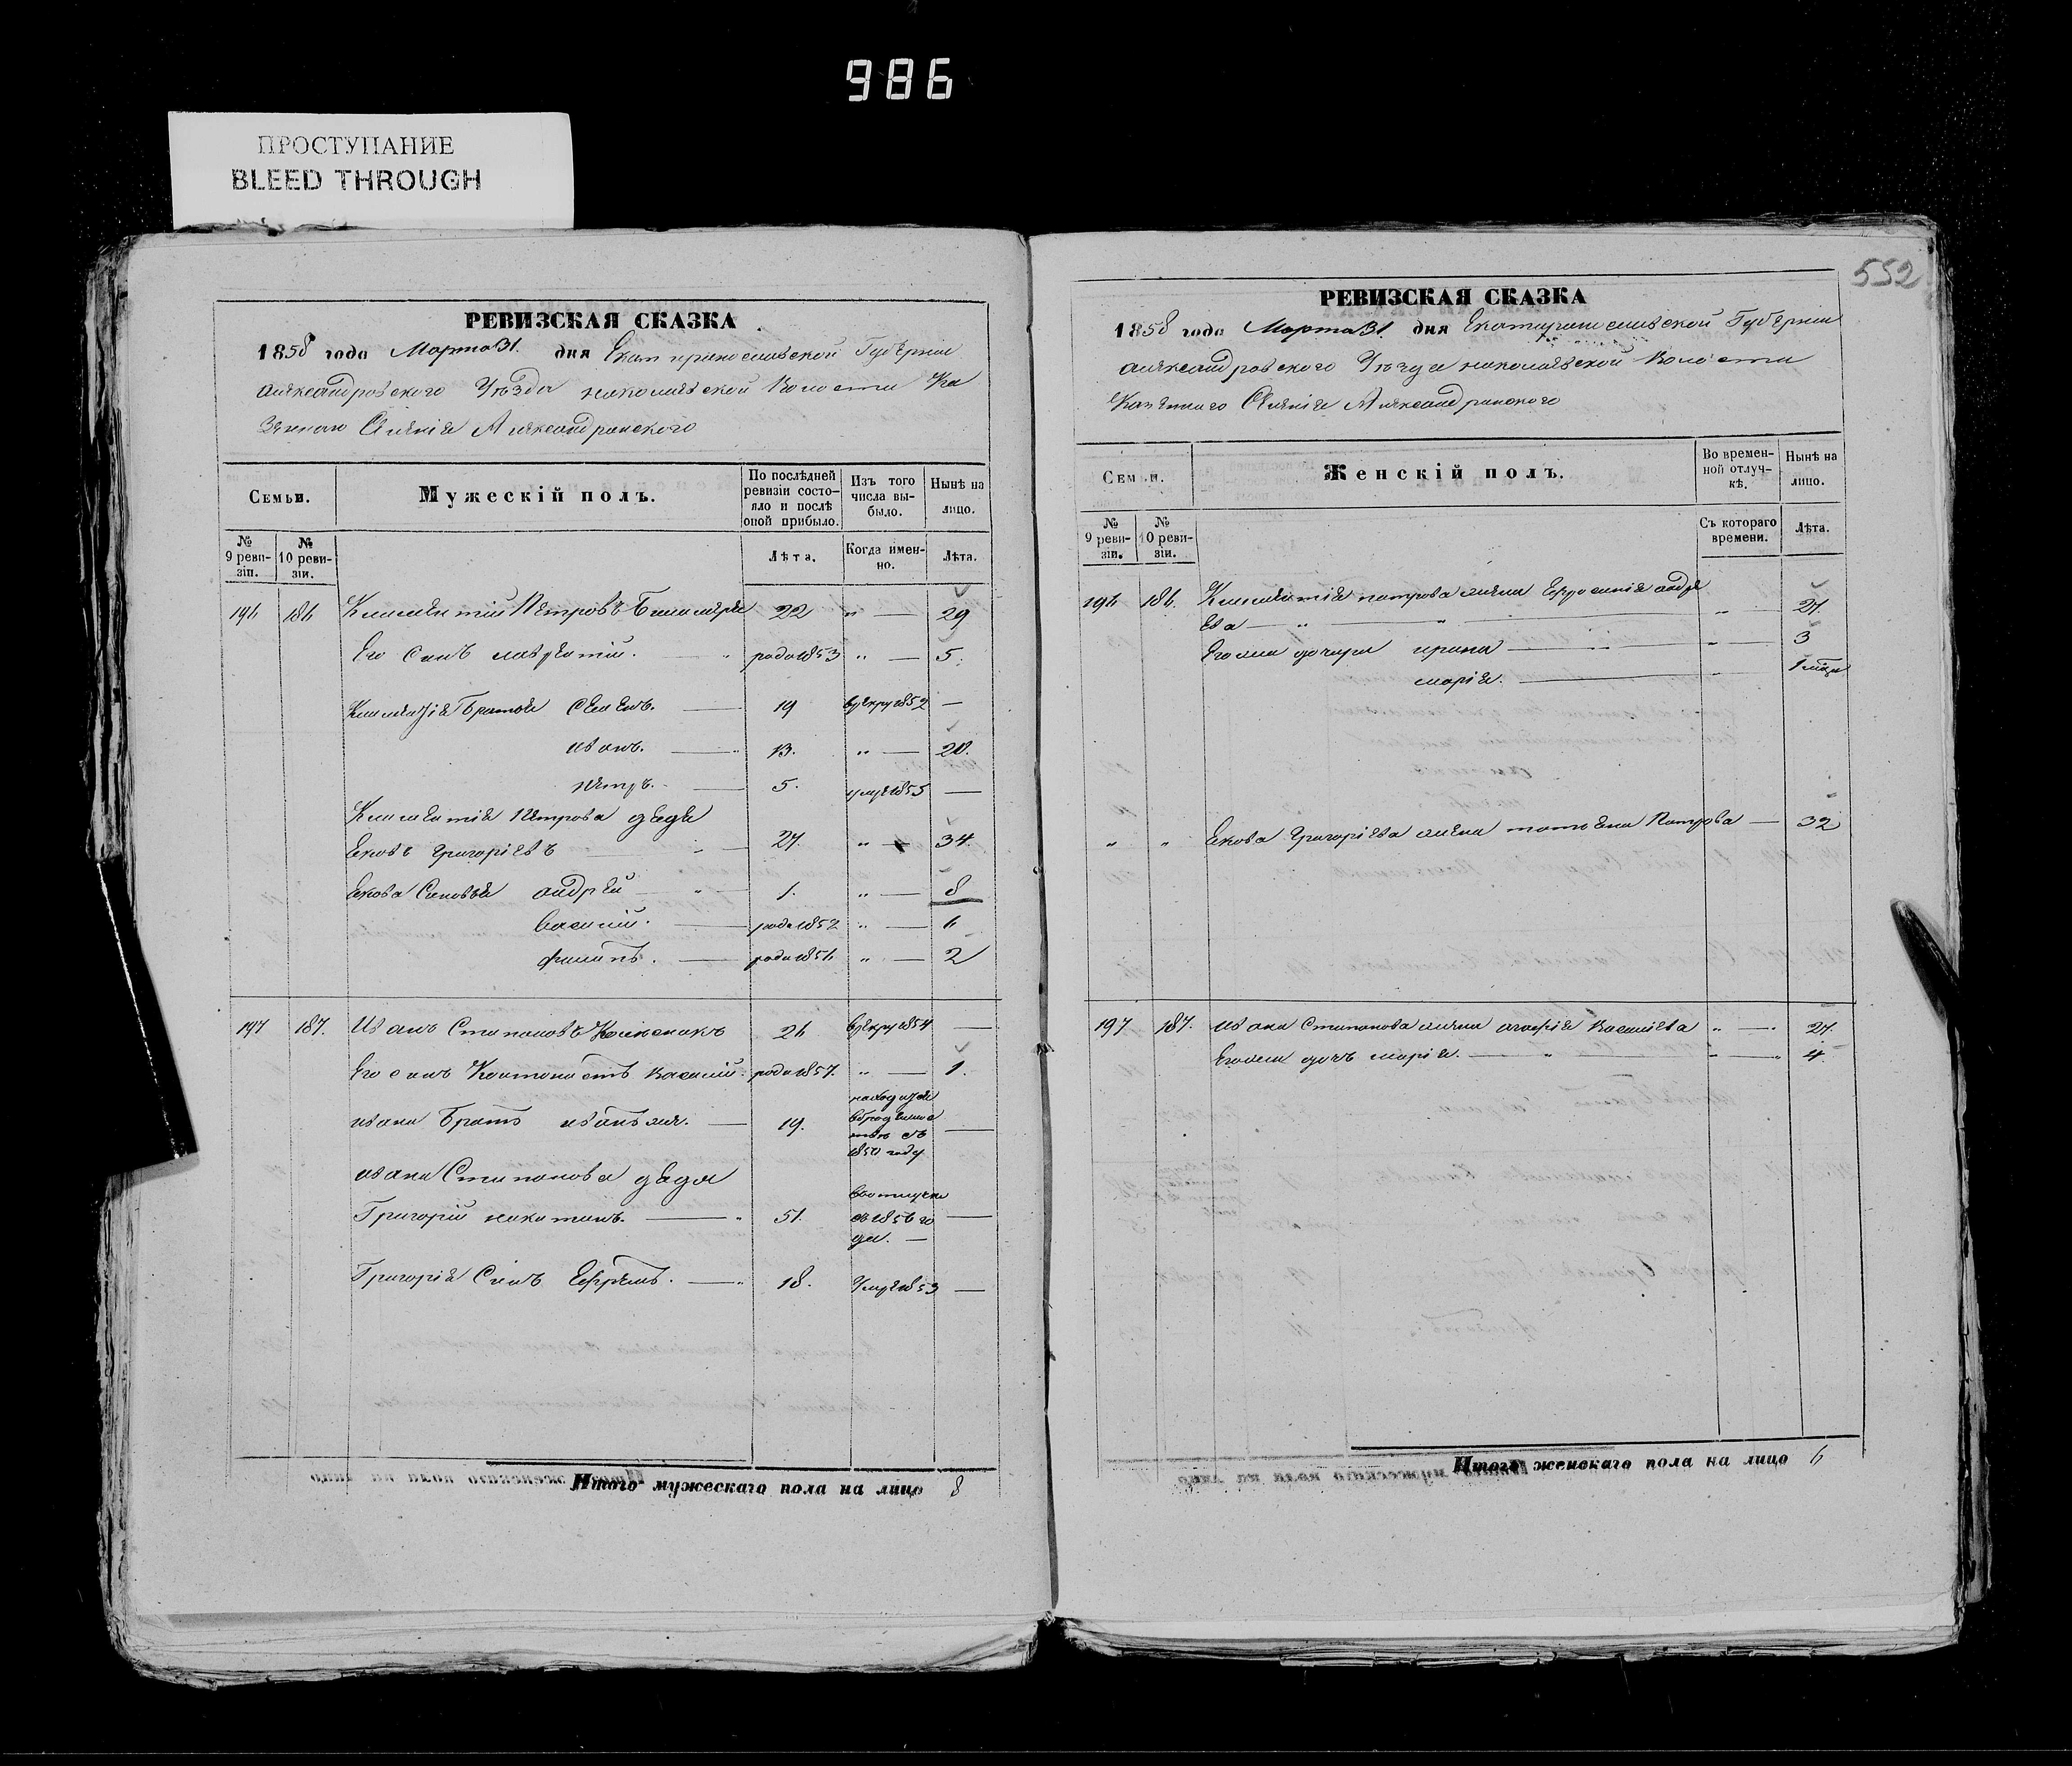 986
ПРОСТУПАНИЕ
BLEED THROUGH
РЕВИЗСКАЯ СКАЗКА
1858 года Марта 31. дня Екатиринославской Губернии
александровского Уѣзда николаевской Волости Ка
зеннаго Селенія Александровского
Семьи.
Мужескій полъ.
По послѣдней ревизіи состояло и послѣ оной прибыло.
Изъ того числа выбыло.
Нынѣ на лицо.
№ 9 ревизіи.
№ 10 ревизіи.
Лѣта.
Когда именно.
Лѣта.
196 186 Климентій Петровъ 22 " — 29
Его Сынъ лаврентій. родо1853 " — 5.
Климентія Братья Семенъ. — 19 врекру1852 —
иванъ. — 13. " — 20.
петръ. — 5. умре1855 —
Климентія Петрова дядя
Яковъ григоріевъ — 27. " — 34.
Якова Сыновья андрей — 1. " — 8
василий. — родо1852 " — 6
филипъ. — родо1856 " — 2
197 187. Иванъ Стипановъ 26 врекру1854 —
Его сынъ василий. родо1857. " — 1.
ивана Братъ иванъ же. — 19. —
1850 году
ивана Стипанова дядя
Григорій никитинъ. — 51. —
Григорія Сынъ Ефремъ. — 18. Умре1853 —
Итого мужескаго пола на лицо 8
552
РЕВИЗСКАЯ СКАЗКА
1858 года Марта 31. дня Екатиринославской Губернии
александровского Уѣзда николаевской Волости
Казеннаго Селенія Александровского
Семьи.
Женскій полъ.
Во временной отлучкѣ.
Нынѣ на лицо.
№ 9 ревизіи.
№ 10 ревизіи.
Съ котораго времени.
Лѣта.
196 186. Климентія петрова жена Ефросинія андре
ева — " — " — 27.
Его же дочери ирина — " — 3
марія. — " — 1 мѣся
" " Якова Григоріева жена татьяна Петрова — 32
197 187. ивана Стипанова жена агафія Василіева " — 27.
Его же дочь марія. — " — 4.
Итого женскаго пола на лицо 6